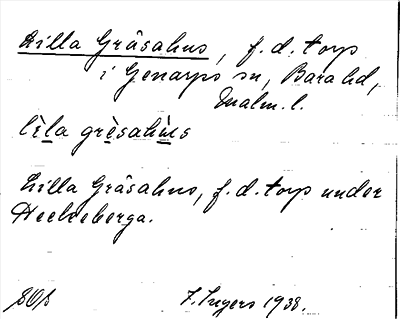 Lilla Gråsahus, f.d. torp
i Genarps sn, Bara hd,
Malm. l.
lìla grèsahùs
Lilla Gråsahus, f.d. torp under
Heckeberga.
F. Ingers 1938.